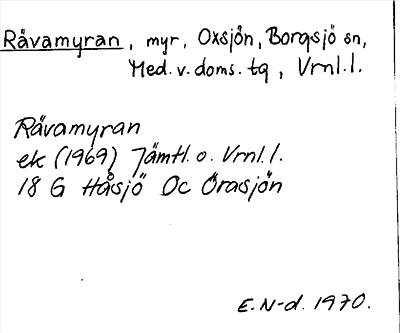 Råvamyran, myr, Oxsjön, Borgsjö sn,
Med. v. doms. tg, Vrnl. l.
Råvamyran
ek (1969) Jämtl. o. Vrnl. l.
18 G Håsjö Oc Örasjön
E. N-d. 1970.